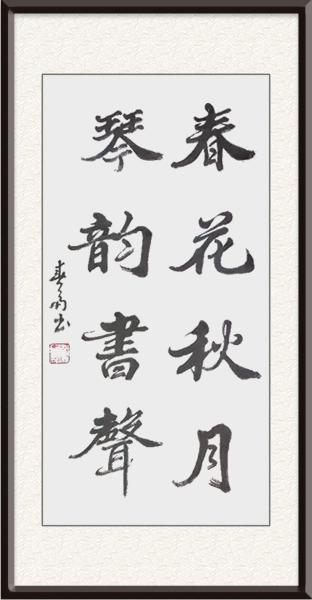 春花秋月
琴韵書聲